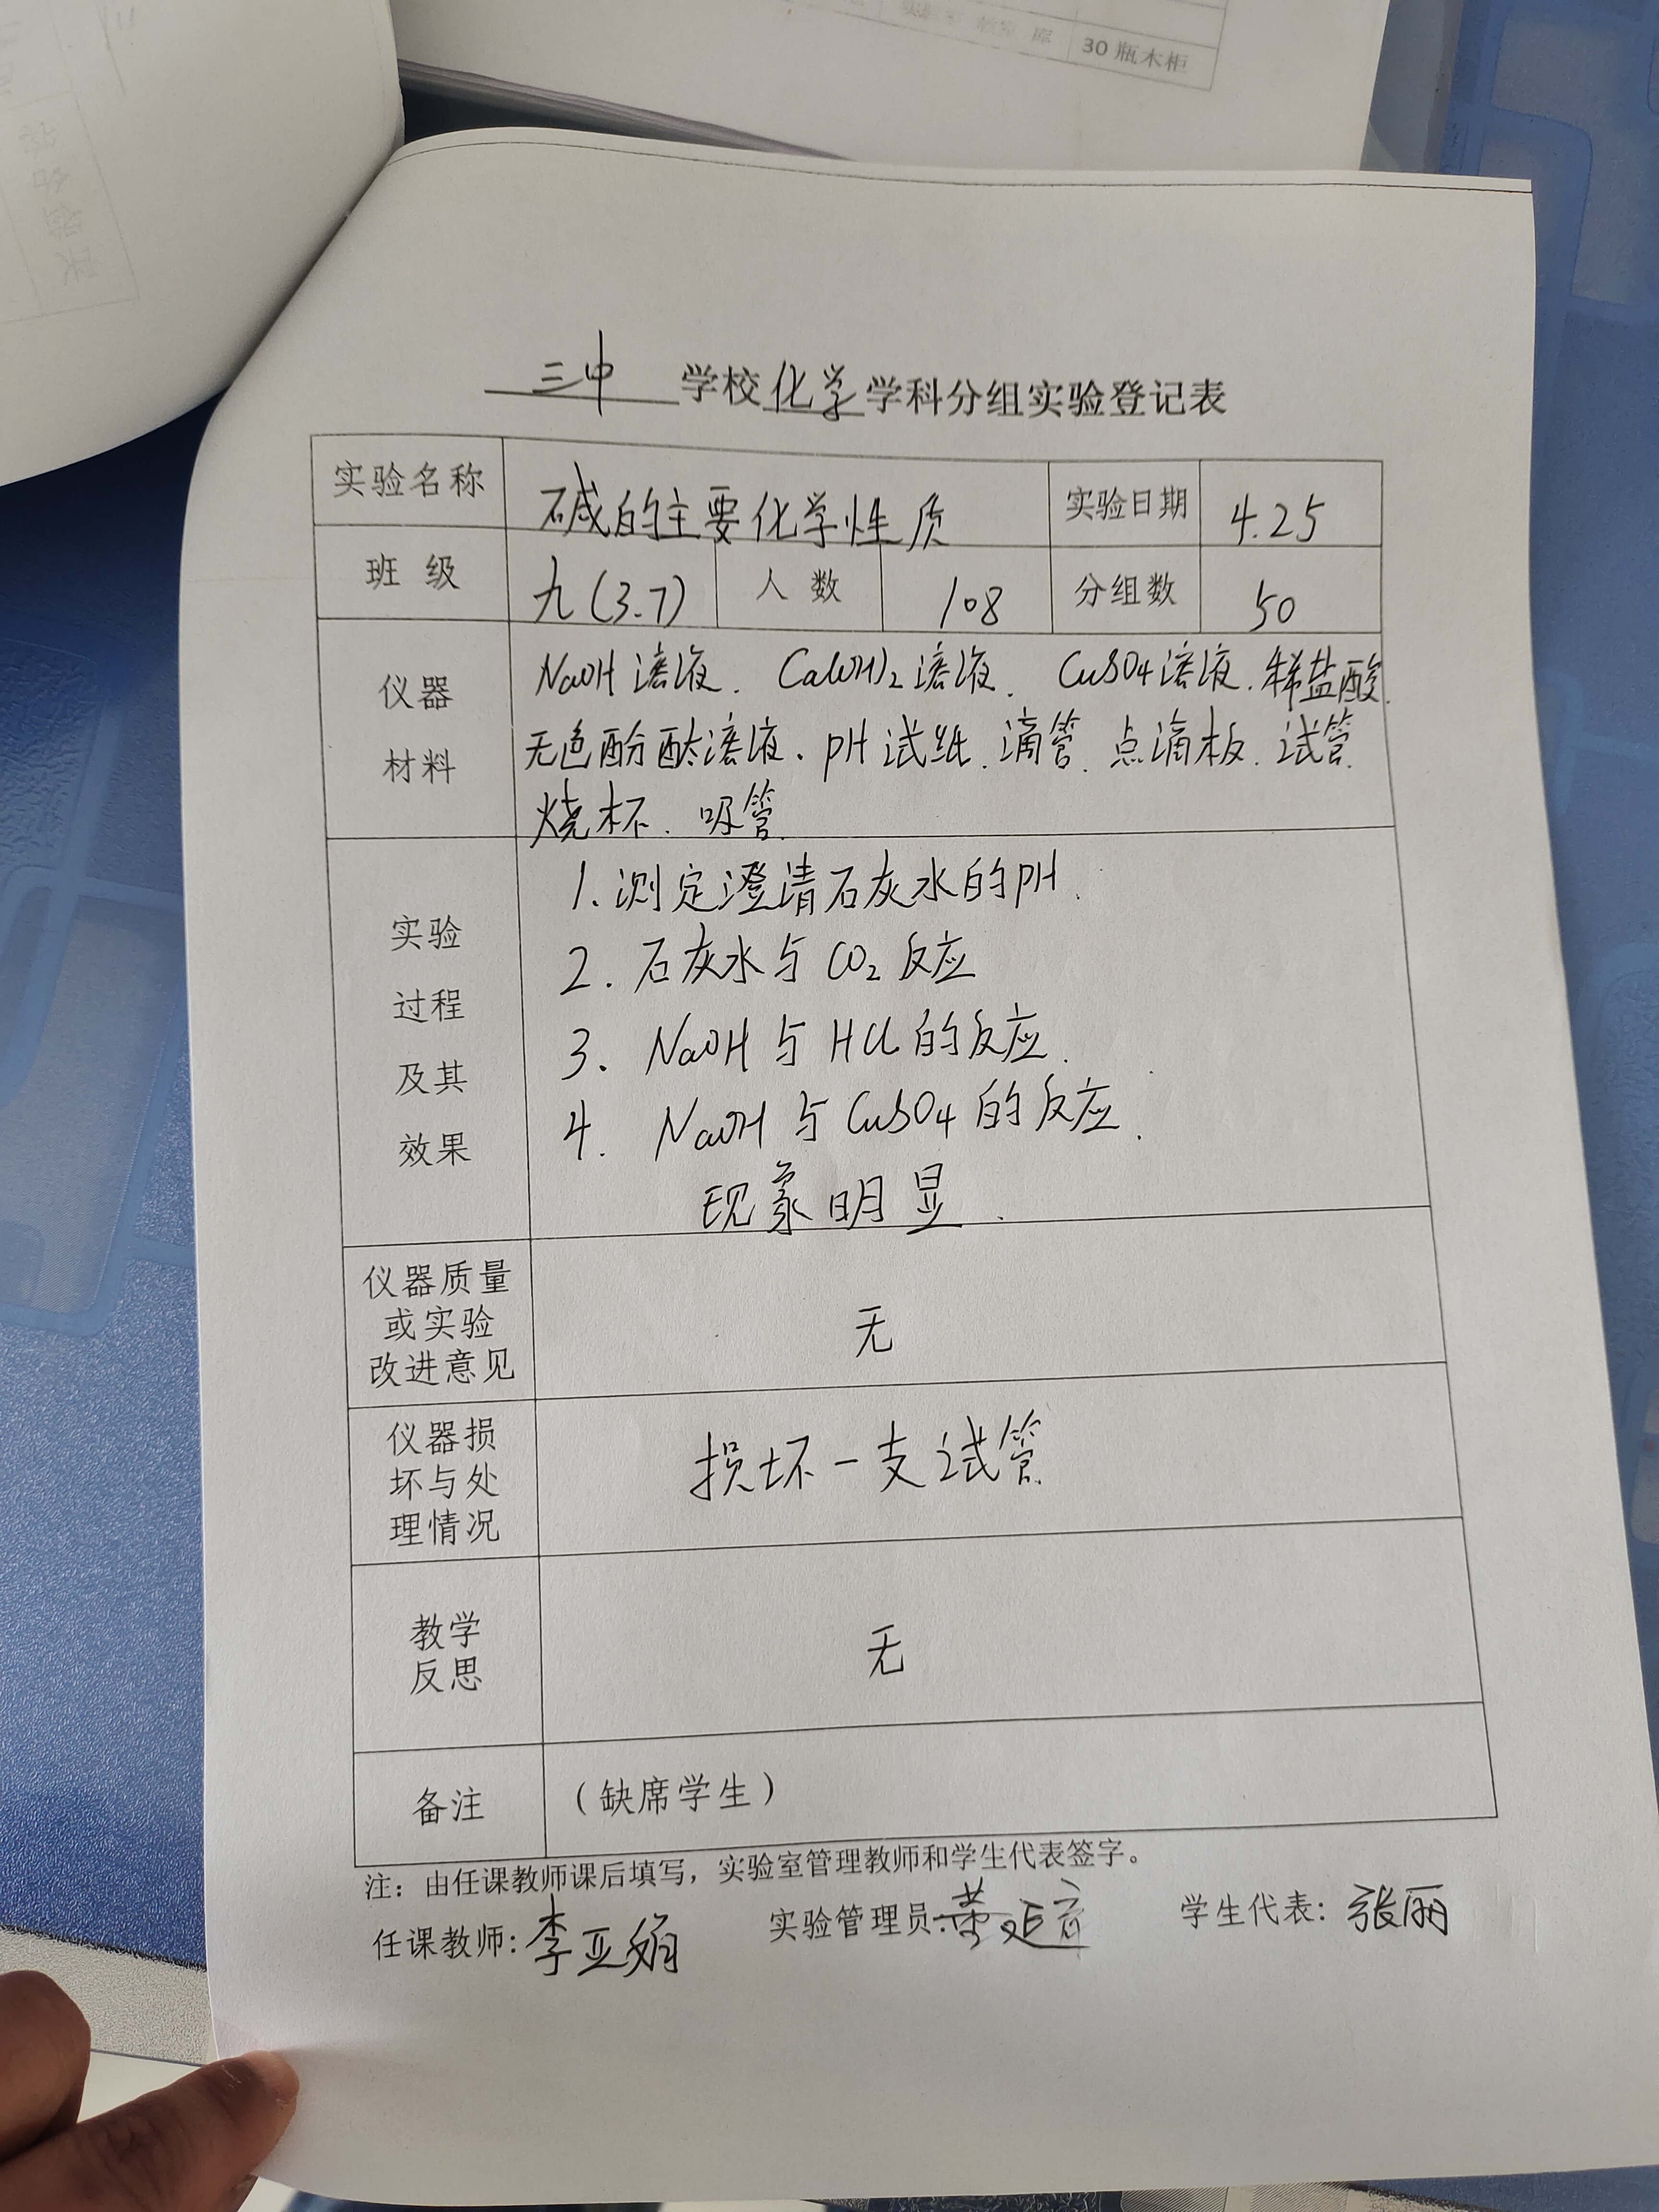 30 瓶木柜
三中 学校 化学 学科分组实验登记表
实验名称 碱的主要化学性质 实验日期 4.25
班 级 九(3.7) 人 数 108 分组数 50
仪器
材料
NaOH 溶液、Ca(OH)2 溶液、CuSO4 溶液、稀盐酸、
无色酚酞溶液、pH 试纸、滴管、点滴板、试管、
烧杯、吸管
实验
过程
及其
效果
1. 测定澄清石灰水的pH.
2. 石灰水与 CO2 反应
3. NaOH 与 HCl 的反应.
4. NaOH 与 CuSO4 的反应.
现象明显.
仪器质量
或实验
改进意见
无
仪器损
坏与处
理情况
损坏一支试管
教学
反思
无
备注 (缺席学生)
注:由任课教师课后填写,实验室管理教师和学生代表签字。
任课教师: 李亚娟 实验管理员: 学生代表: 张丽